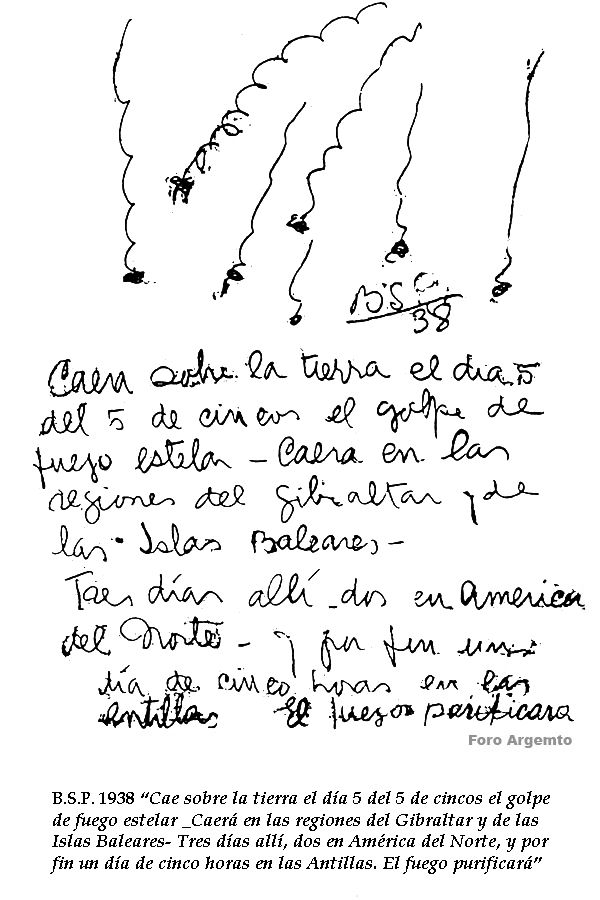 B.S.P.
38
Caera sobre la tierra el dia 5
del 5 de cincos el golpe de
fuego estelar – Caera en las
regiones del Gibraltar y de
las Islas Baleares –
Tres días allí – dos en America
del Norte – y por fin un
día de cinco horas en las
Antillas El fuego purificara
Foro Argemto
B.S.P. 1938 “Cae sobre la tierra el día 5 del 5 de cincos el golpe
de fuego estelar _Caerá en las regiones del Gibraltar y de las
Islas Baleares- Tres días allí, dos en América del Norte, y por
fin un día de cinco horas en las Antillas. El fuego purificará”